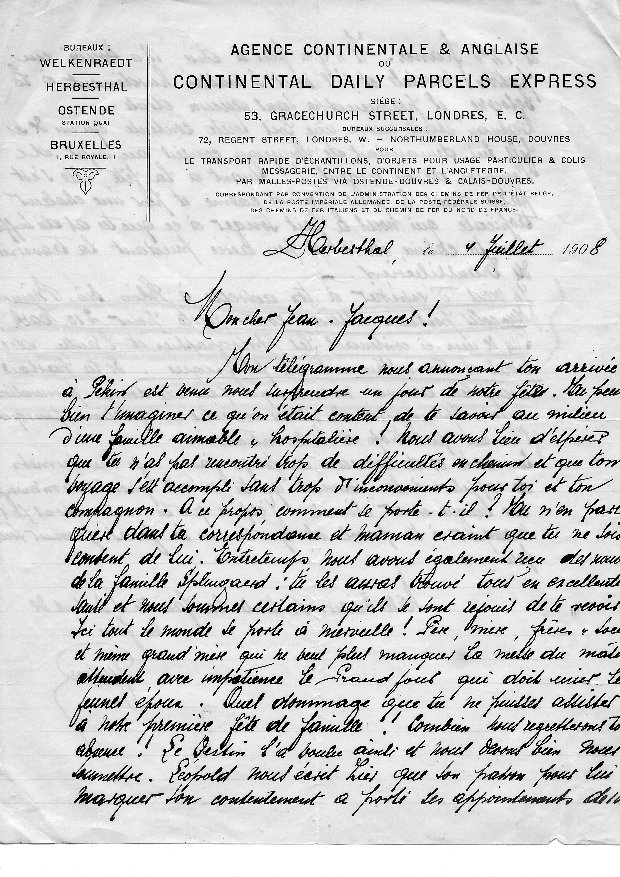 BUREAUX :
WELKENRAEDT
HERBESTHAL
OSTENDE
STATION QUAI
BRUXELLES
1, RUE ROYALE, 1
AGENCE CONTINENTALE & ANGLAISE
OU
CONTINENTAL DAILY PARCELS EXPRESS
SIÈGE :
53, GRACECHURCH STREET, LONDRES, E. C.
BUREAUX SUCCURSALES :
72, REGENT STREET, LONDRES, W. – NORTHUMBERLAND HOUSE, DOUVRES
POUR
LE TRANSPORT RAPIDE D'ÉCHANTILLONS, D'OBJETS POUR USAGE PARTICULIER & COLIS
MESSAGERIE, ENTRE LE CONTINENT ET L'ANGLETERRE,
PAR MALLES-POSTES VIA OSTENDE-DOUVRES & CALAIS-DOUVRES.
CORRESPONDANT PAR CONVENTION DE L'ADMINISTRATION DES CHEMINS DE FER DE L'ÉTAT BELGE,
DE LA POSTE IMPÉRIALE ALLEMANDE, DE LA POSTE FÉDÉRALE SUISSE,
DES CHEMINS DE FER ITALIENS ET DU CHEMIN DE FER DU NORD DE FRANCE
Herbesthal, le 4 Juillet 1908
Mon cher Jean-Jacques !
Ton télégramme nous annonçant ton arrivée
à Pékin est venu nous surprendre un jour de notre fête. Tu peux
bien t'imaginer ce qu'on était content de te savoir au milieu
d'une famille aimable & hospitalière ! Nous avons lieu d'espérer
que tu n'as pas rencontré trop de difficultés en chemin et que ton
voyage s'est accompli sans trop d'inconvénients pour toi et ton
compagnon. A ce propos comment se porte-t-il ? Tu n'en parle
guère dans ta correspondance et maman craint que tu ne sois
content de lui. Entretemps nous avons également reçu des
de la famille Splingaerd : tu les auras trouvé tous en excellente
santé et nous sommes certains qu'ils se sont réjouis de te revoir
Ici tout le monde se porte à merveille ! Père, mère, frères &
et même grand'mère qui ne veut plus manquer la messe du matin
attendent avec impatience le Grand jour qui doit unir les
jeunes époux. Quel dommage que tu ne puisses assister
à notre première fête de famille ! Combien nous regretterons ton
absence ! Le Destin l'a voulu ainsi et nous devons bien nous
soumettre. Léopold nous écrit hier que son patron pour lui
marquer son contentement a porté ses appointements de